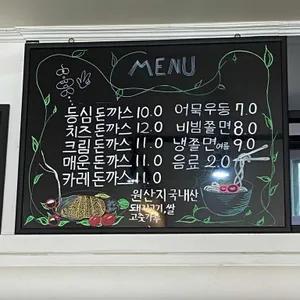 MENU
등심돈까스 10.0
치즈돈까스 12.0
크림돈까스 11.0
매운돈까스 11.0
카레돈까스 11.0
어묵우동 7.0
비빔쫄면 8.0
냉쫄면 여름 9.0
음료 2.0
원산지 국내산
돼지고기, 쌀
고춧가루